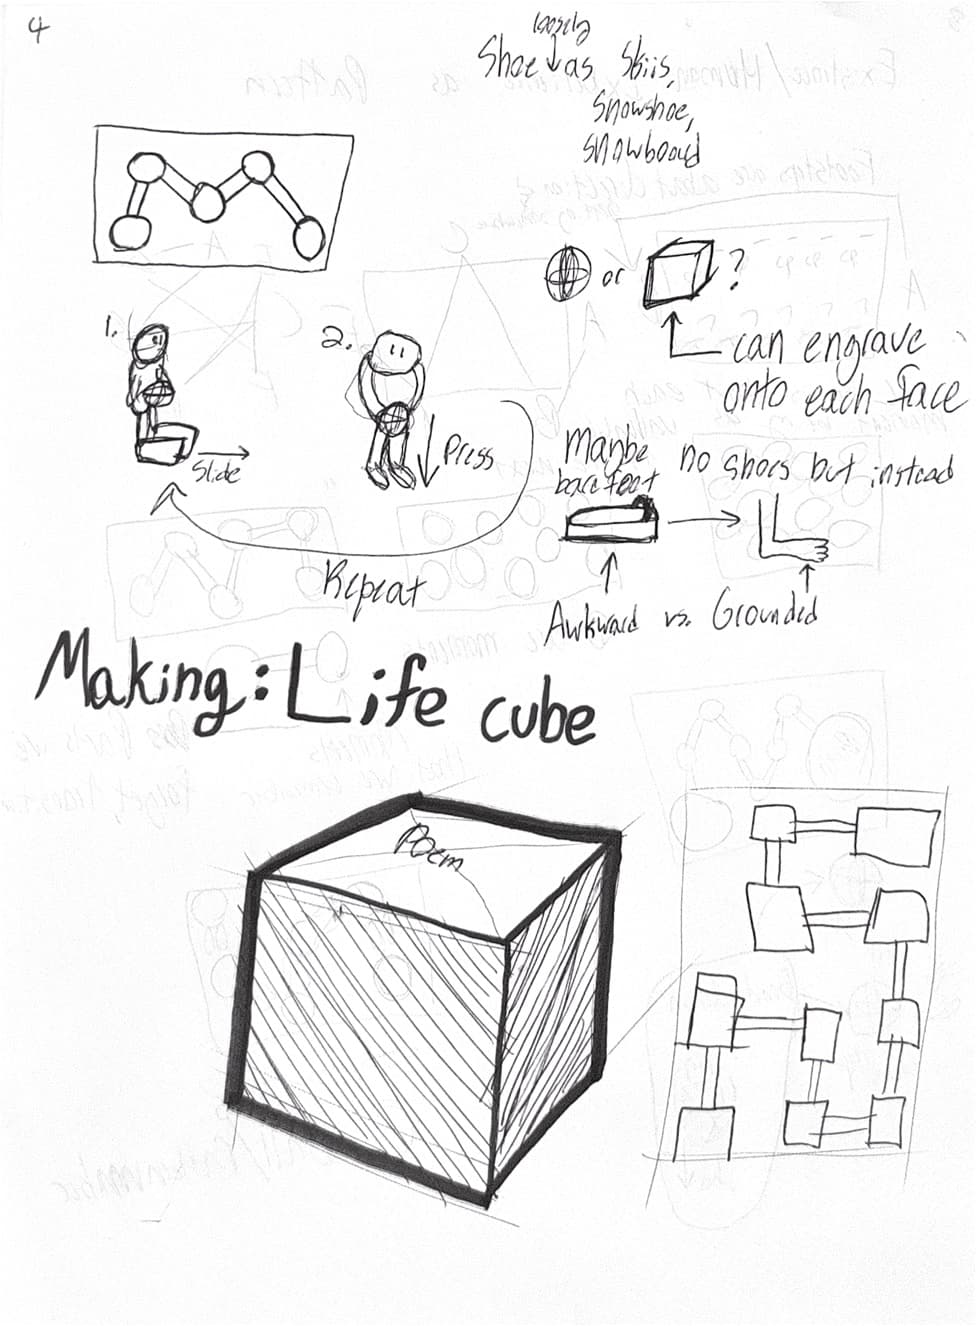 4
loosely
Shoe as Skiis,
Snowshoe,
Snowboard
or ?
can engrave
onto each face
1.
2.
Slide
Press
Repeat
Maybe
barefoot
no shoes but instead
Awkward vs. Grounded
Making: Life cube
Poem